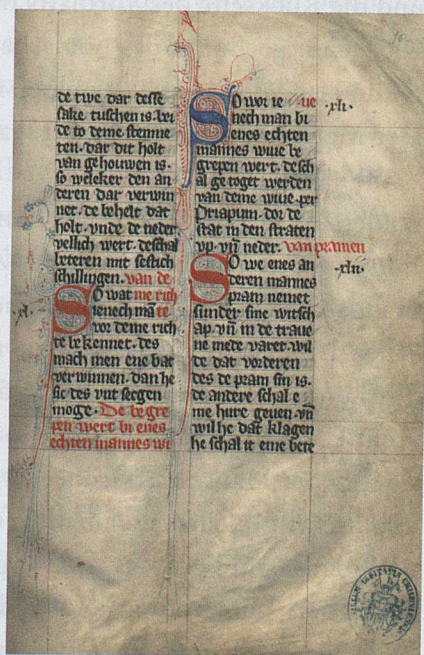 de twe dar desse
sake tuschen is. bei
de to deme stenne
ten. dar dit holt
van gehouwen is.
so weleker den an
deren dar verwin
net. de behelt dat
holt. vnde de neder
vellich wert. deschal
beteren mit sestich
schillingen. van de
So wat me rich
.xl.
ienech mā te
vor deme rich
te bekennet. des
mach men ene bat
verwinnen. dan he
sic des vnt seegen
moge. De begre
pen wert bi enes
echten mannes wi
So wor ie ue
.xli.
nech man bi
enes echten
mannes wiue be
grepen wert. desch
al ge toget werden
van deme wiue. per
Priapum. dor de
stat in den straten
vp. vn̄ neder. van pramen
So we enes an
.xlii.
deren mannes
pram nemet
sunder sine witsch
ap. vn̄ in de traue
ne mede varet. wil
de dat vorderen
des de pram sin is.
de andere schal e
me hure geuen. vn̄
wil he dat klagen
he schal it eme bete